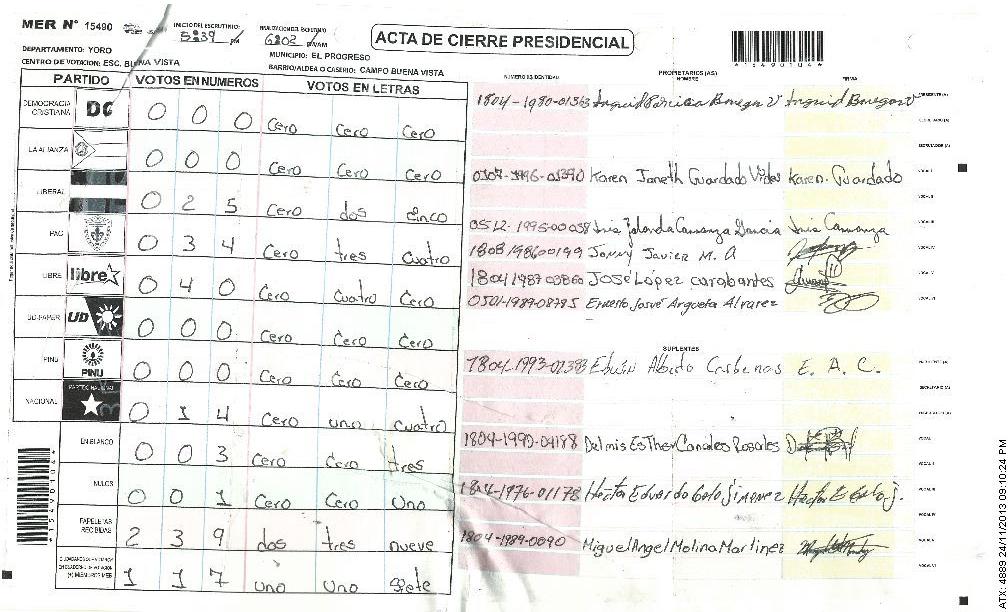 MER N° 15490
INICIO DEL ESCRUTINIO:
5:39 PM
6:02 P.M/AM
ACTA DE CIERRE PRESIDENCIAL
*15490104*
DEPARTAMENTO: YORO
MUNICIPIO: EL PROGRESO
CENTRO DE VOTACION: ESC. BUENA VISTA
BARRIO/ALDEA O CASERIO: CAMPO BUENA VISTA
PARTIDO VOTOS EN NUMEROS VOTOS EN LETRAS
DEMOCRACIA CRISTIANA DC 0 0 0 Cero Cero Cero
LA ALIANZA 0 0 0 Cero Cero Cero
LIBERAL 0 2 5 Cero dos Cinco
PAC 0 3 4 Cero tres Cuatro
LIBRE libre 0 4 0 Cero Cuatro Cero
UD-FAPER UD 0 0 0 Cero Cero Cero
PINU PINU 0 0 0 Cero Cero Cero
NACIONAL PARTIDO NACIONAL 0 1 4 Cero uno Cuatro
EN BLANCO 0 0 3 Cero Cero tres
NULOS 0 0 1 Cero Cero Uno
PAPELETAS RECIBIDAS 2 3 9 dos tres nueve
1 1 7 uno Uno Siete
*15490104*
NUMERO IDENTIDAD
PROPIETARIOS (AS)
NOMBRE
FIRMA
1804-1980-01363
PRESIDENTE (A)
SECRETARIO (A)
ESCRUTADOR (A)
Karen Janeth Guardado Karen. Guardado
VOCAL I
VOCAL II
VOCAL III
1808198600199 Jonny Javier M. A
VOCAL IV
1804 1987 03860 José López carabantes
VOCAL V
0501-1989-08785 Ernesto Josué Argueta Alvarez
VOCAL VI
SUPLENTES
1804-1993-01383 Edwin Alberto E. A. C.
SECRETARIO (A)
1804-1990-04188 Delmis Esther Canales Rosales
VOCAL I
VOCAL II
1804-1976-01178 Hector Eduardo Jimenez
VOCAL III
VOCAL IV
1804-1989-0090 Miguel Angel Molina Martinez
VOCAL V
VOCAL VI
ATX: 4889 24/11/2013 09:10:24 PM